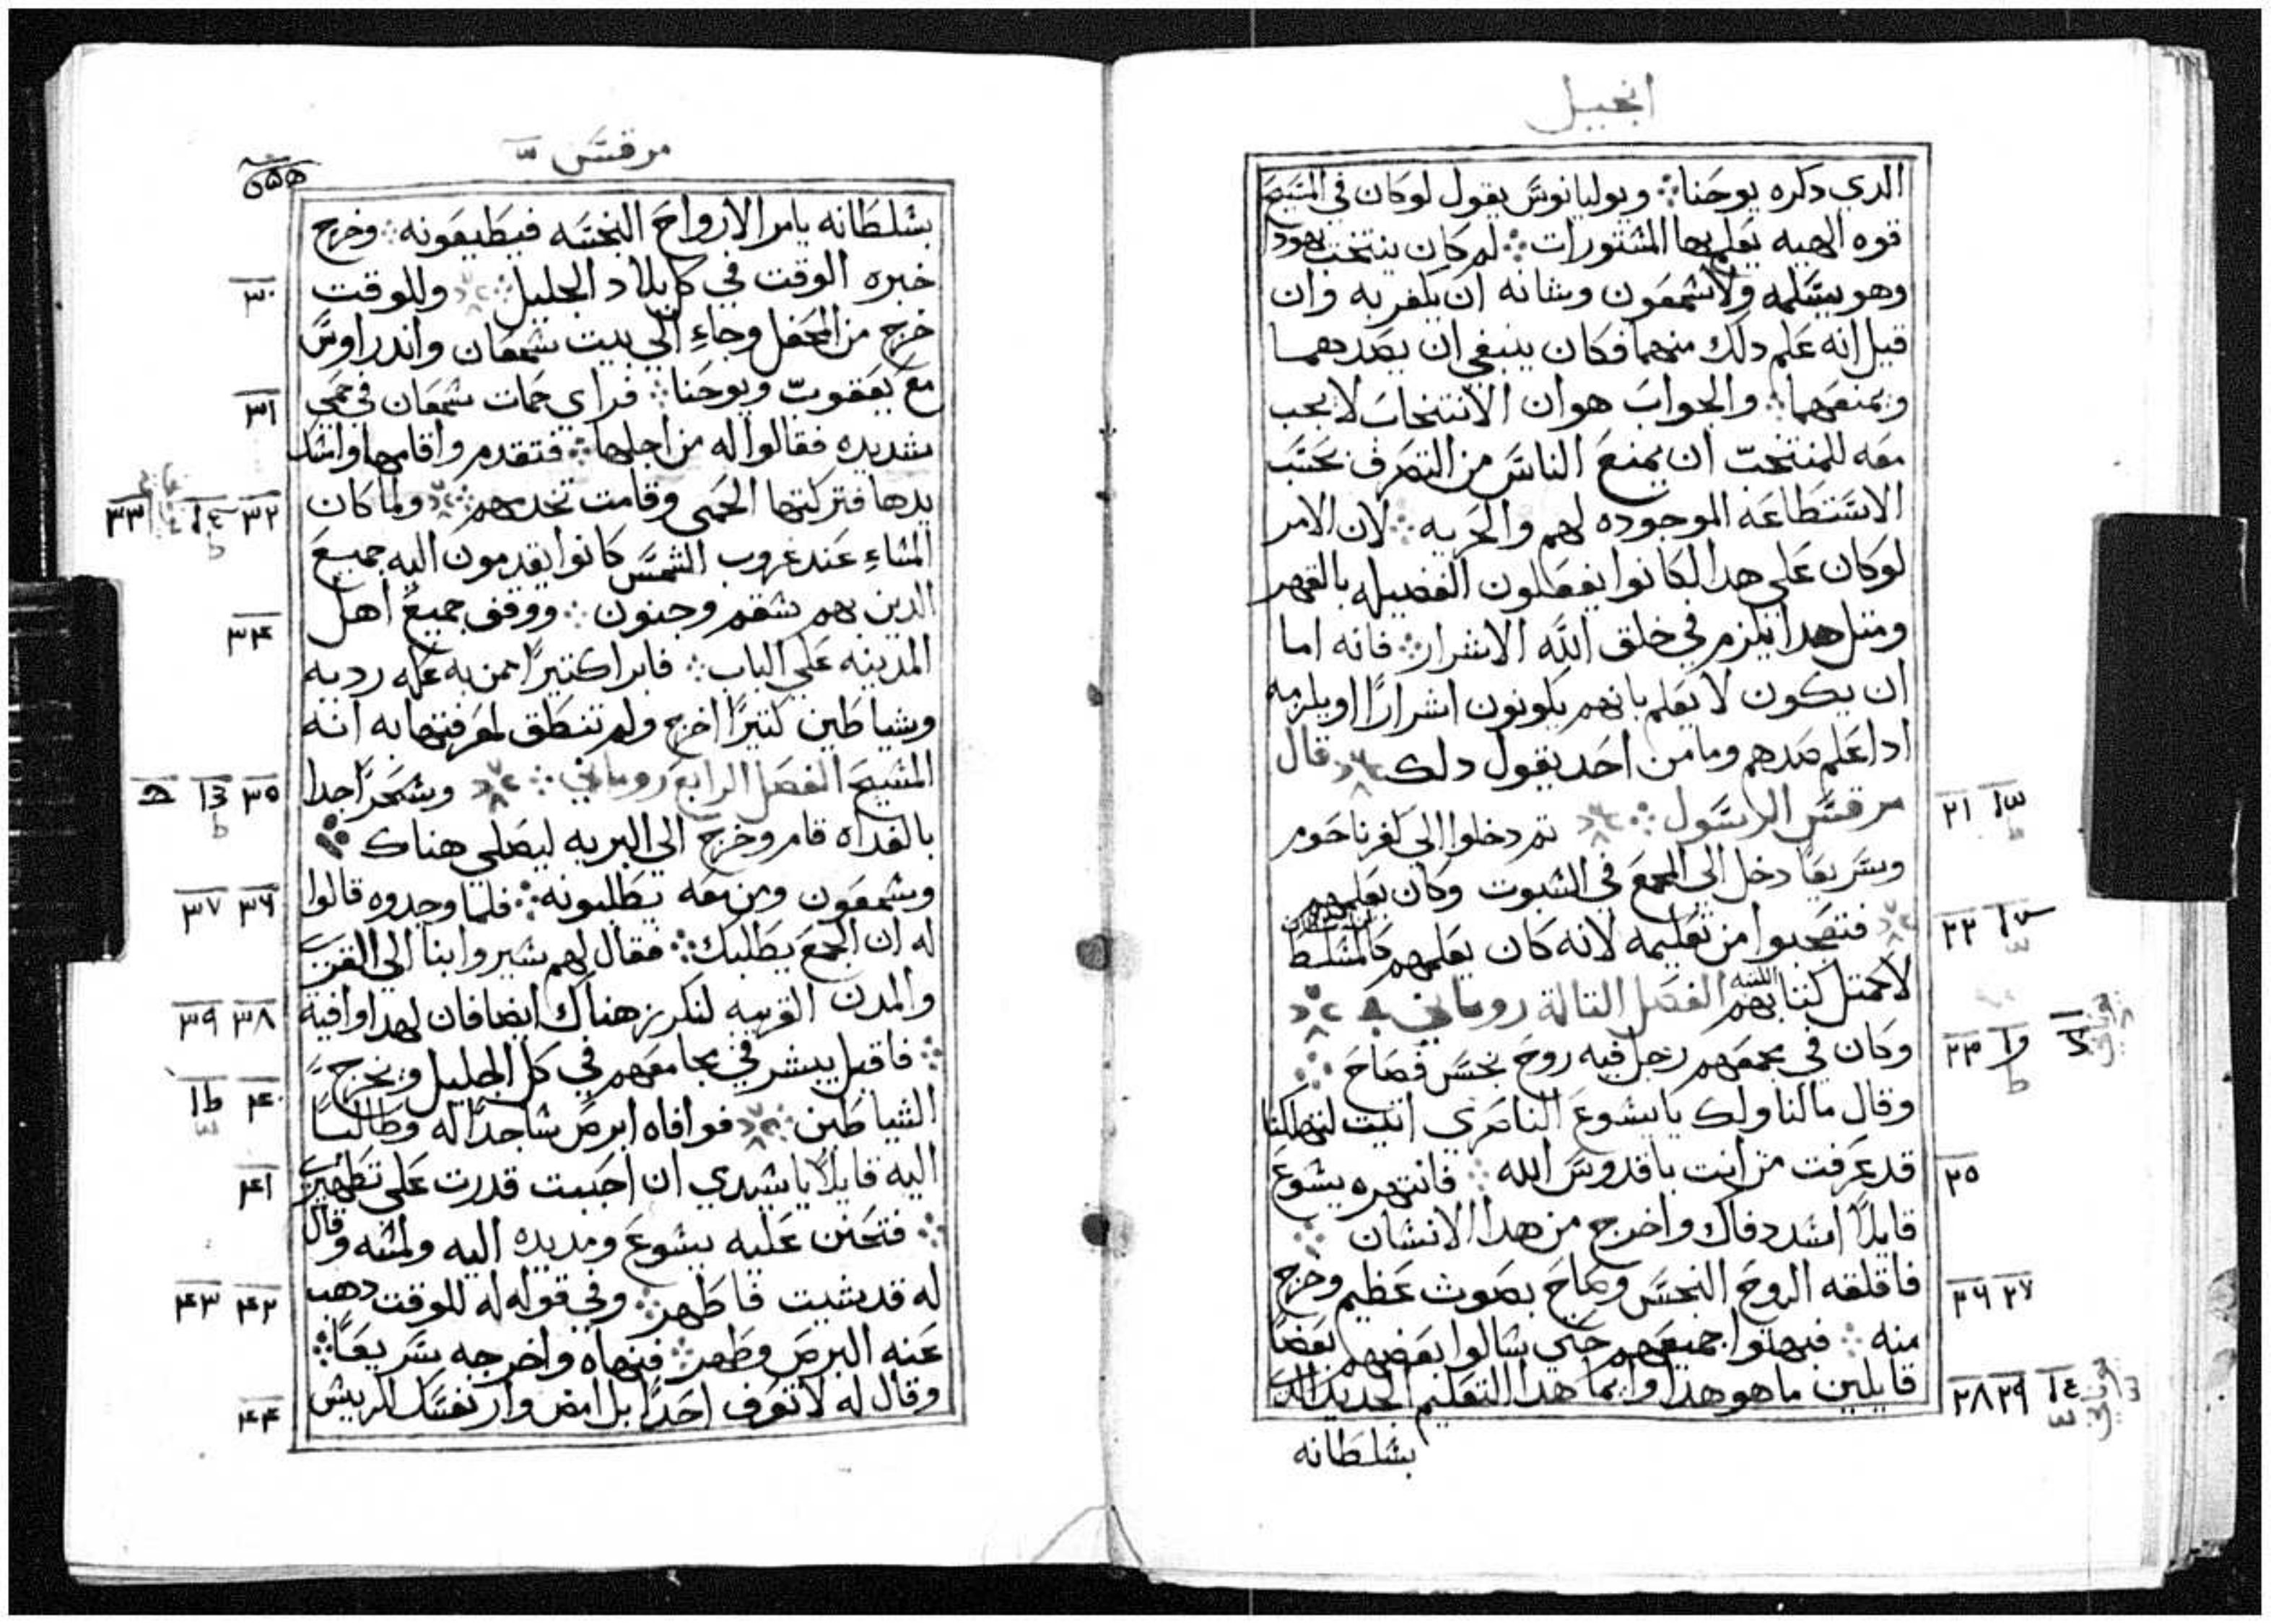 انجيل
الدي دكره يوحنا ؞ ويوليانوس يقول لوكان في المسيح
قوه الهيه يعلم بها المستورات ؞ لم كان ينتخب يهودا
وهو يسلمه ولا شمعون وشانه ان يكفر به وان
قيل انه علم دلك منهما فكان ينبغي ان يصدهما
ويمنعهما ؞ والجواب هو ان الانتخاب لا يجب
معه للمنتخب ان يمنع الناس من التصرف بحسب
الاستطاعه الموجوده لهم والحريه ؞ لان الامر
لوكان على هدا لكانوا يفعلون الفضيله بالقهر
ومتل هدا يلزم في خلق الله الاشرار ؞ فانه اما
ان يكون لا يعلم بانهم يكونون اشرارًا او يلزمه
ادا علم صدهم وما من احد يقول دلك قال
مرقس الرسول ؞ تم دخلوا الى كفرناحوم ٢١
وسريعًا دخل الى المجمع في السبوت وكان يعلمهم
فتعجبوا من تعليمه لانه كان يعلمهم كالمسلط ٢٢
لا كمتل كتابهم الفصل التالة روماني
وكان في مجمعهم رجل فيه روح نجس فصاح ؞ ٢٣
وقال مالنا ولك يا يسوع الناصري اتيت لتهلكنا
قد عرفت من انت يا قدوس الله ؞ فانتهره يسوع ٢٥
قايلًا اسدد فاك واخرج من هدا الانسان ؞
فاقلقه الروح النجس وصاح بصوت عظيم وخرج ٢٦ ٢٧
منه ؞ فبهتوا جميعهم حتى سالوا بعضهم بعضًا
قايلين ما هو هدا وايما هدا التعليم الجديد الدي ٢٨ ٢٩
بسلطانه
مرقس
بسلطانه يامر الارواح النجسه فيطيعونه ؞ وخرج
خبره الوقت في كل بلاد الجليل ؞ وللوقت ٣٠
خرج من المحفل وجاءِ الي بيت سمعان واندراوس
مع يعقوب ويوحنا ؞ فراي حمات سمعان في حمي ٣١
شديده فقالوا له من اجلها ؞ فتقدم واقامها وامسك
يدها فتركتها الحمى وقامت تخدمهم ؞ ولما كان ٣٢ ٣٣
المساءِ عند غروب الشمس كانوا يقدمون اليه جميع
الدين بهم سقم وجنون ؞ ووقف جميع اهل ٣٤
المدينه على الباب ؞ فابرا كتيرًا ممن به عله رديه
وشياطين كتيرًا اخرج ولم تنطق لمعرفتها به انه
المسيح الفصل الرابع روماني ؞ وسحرًا جدا ٣٥
بالغداه قام وخرج الي البريه ليصلي هناك ؞
وشمعون ومن معه يطلبونه ؞ فلما وجدوه قالوا ٣٦ ٣٧
له ان الجمع يطلبك ؞ فقال لهم سيروا بنا الي القرى
والمدن القريبه لنكرز هناك ايضا فان لهدا وافيت ٣٨ ٣٩
؞ فاقبل يبشر في مجامعهم في كل الجليل ويخرج
الشياطين ؞ فوافاه ابرص ساجدًا له وطالبًا ٤٠
اليه قايلًا يا سيدي ان احببت قدرت على تطهيري ٤١
؞ فتحنن عليه يسوع ومد يده اليه ولمسه وقال
له قد شيت فاطهر ؞ وفي قوله له للوقت دهب ٤٢ ٤٣
عنه البرص وطهر ؞ فنهاه واخرجه سريعًا ؞
وقال له لا تعرف احدًا بل امض وار نفسك للريس ٤٤